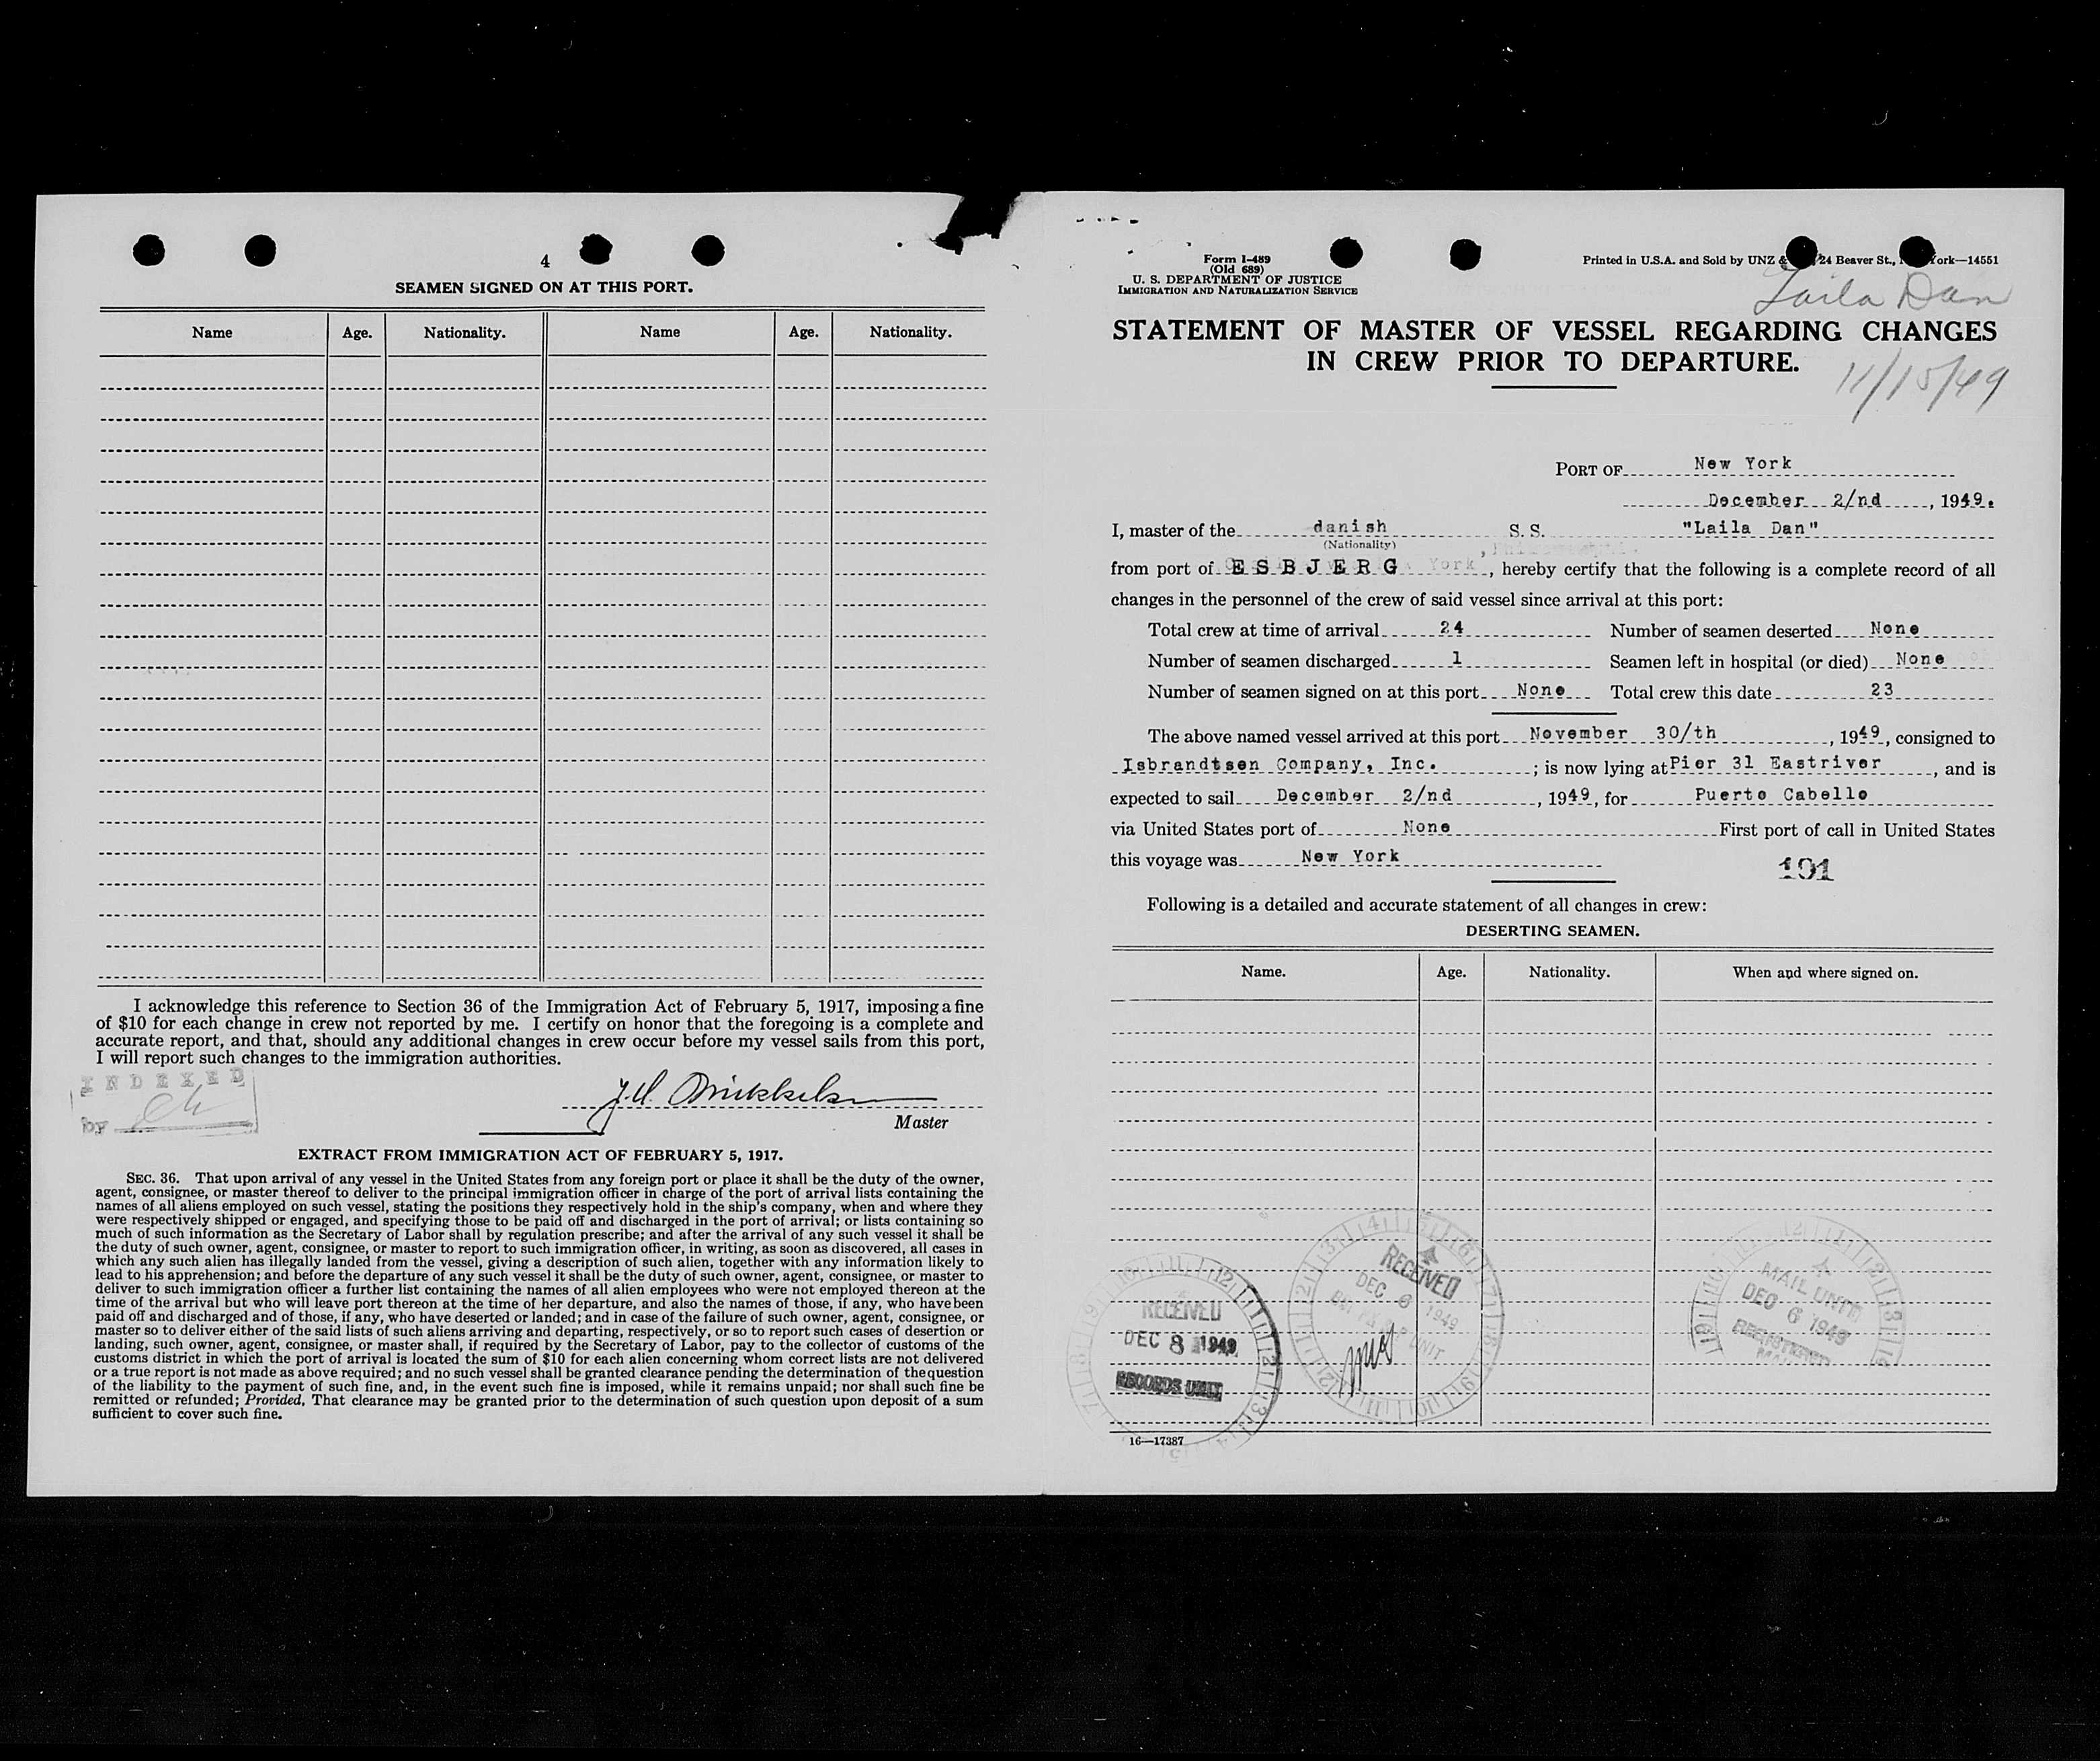 4
SEAMEN SIGNED ON AT THIS PORT.
Name Age. Nationality. Name Age. Nationality.
I acknowledge this reference to Section 36 of the Immigration Act of February 5, 1917, imposing a fine
of $10 for each change in crew not reported by me. I certify on honor that the foregoing is a complete and
accurate report, and that, should any additional changes in crew occur before my vessel sails from this port,
I will report such changes to the immigration authorities.
INDEXED
by
Master
EXTRACT FROM IMMIGRATION ACT OF FEBRUARY 5, 1917.
SEC. 36. That upon arrival of any vessel in the United States from any foreign port or place it shall be the duty of the owner,
agent, consignee, or master thereof to deliver to the principal immigration officer in charge of the port of arrival lists containing the
names of all aliens employed on such vessel, stating the positions they respectively hold in the ship's company, when and where they
were respectively shipped or engaged, and specifying those to be paid off and discharged in the port of arrival; or lists containing so
much of such information as the Secretary of Labor shall by regulation prescribe; and after the arrival of any such vessel it shall be
the duty of such owner, agent, consignee, or master to report to such immigration officer, in writing, as soon as discovered, all cases in
which any such alien has illegally landed from the vessel, giving a description of such alien, together with any information likely to
lead to his apprehension; and before the departure of any such vessel it shall be the duty of such owner, agent, consignee, or master to
deliver to such immigration officer a further list containing the names of all alien employees who were not employed thereon at the
time of the arrival but who will leave port thereon at the time of her departure, and also the names of those, if any, who have been
paid off and discharged and of those, if any, who have deserted or landed; and in case of the failure of such owner, agent, consignee, or
master so to deliver either of the said lists of such aliens arriving and departing, respectively, or so to report such cases of desertion or
landing, such owner, agent, consignee, or master shall, if required by the Secretary of Labor, pay to the collector of customs of the
customs district in which the port of arrival is located the sum of $10 for each alien concerning whom correct lists are not delivered
or a true report is not made as above required; and no such vessel shall be granted clearance pending the determination of the question
of the liability to the payment of such fine, and, in the event such fine is imposed, while it remains unpaid; nor shall such fine be
remitted or refunded; Provided, That clearance may be granted prior to the determination of such question upon deposit of a sum
sufficient to cover such fine.
Form I-489
(Old 689)
U. S. DEPARTMENT OF JUSTICE
IMMIGRATION AND NATURALIZATION SERVICE
Printed in U.S.A. and Sold by UNZ & 24 Beaver St., ork—14551
Laila Dan
STATEMENT OF MASTER OF VESSEL REGARDING CHANGES
IN CREW PRIOR TO DEPARTURE.
11/15/49
PORT OF New York
December 2/nd, 1949.
I, master of the danish S. S. "Laila Dan"
(Nationality)
from port of ESBJERG York, hereby certify that the following is a complete record of all
changes in the personnel of the crew of said vessel since arrival at this port:
Total crew at time of arrival 24 Number of seamen deserted None
Number of seamen discharged 1 Seamen left in hospital (or died) None
Number of seamen signed on at this port None Total crew this date 23
The above named vessel arrived at this port November 30/th, 1949, consigned to
Isbrandtsen Company, Inc.; is now lying at Pier 31 Eastriver, and is
expected to sail December 2/nd, 1949, for Puerto Cabello
via United States port of None First port of call in United States
this voyage was New York
191
Following is a detailed and accurate statement of all changes in crew:
DESERTING SEAMEN.
Name. Age. Nationality. When and where signed on.
RECEIVED
DEC 8 1949
RECORDS UNIT
RECEIVED
DEC 6 1949
UNIT
MAIL UNIT
DEC 6 1949
REGISTERED
16—17387